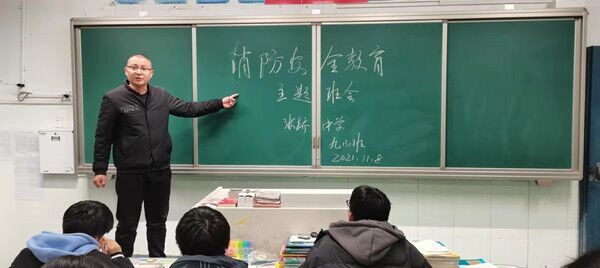 消防安全教育
主题班会
中学
九(3)班
2021.11.8